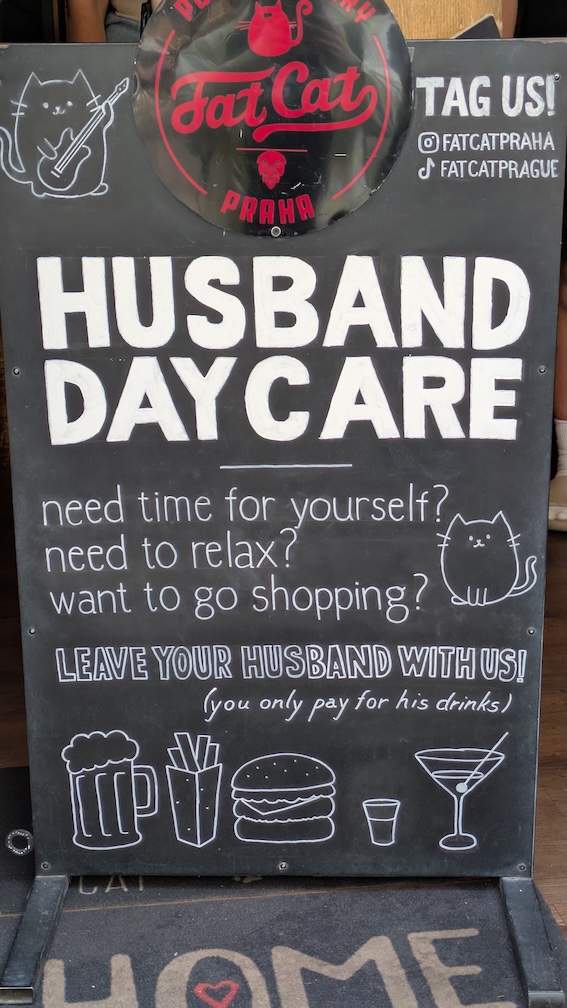 Fat Cat
PRAHA
TAG US!
FATCATPRAHA
FATCATPRAGUE
HUSBAND
DAYCARE
need time for yourself?
need to relax?
want to go shopping?
LEAVE YOUR HUSBAND WITH US!
(you only pay for his drinks)
CAT
HOME